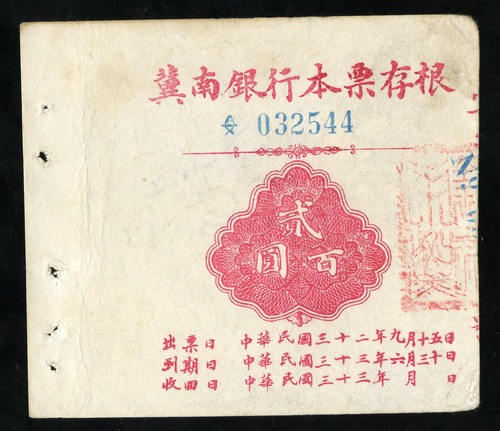 冀南銀行本票存根
032544
貳
百圓
出票日 中華民國三十二年九月十五日
到期日 中華民國三十三年六月三十日
收回日 中華民國三十三年 月 日